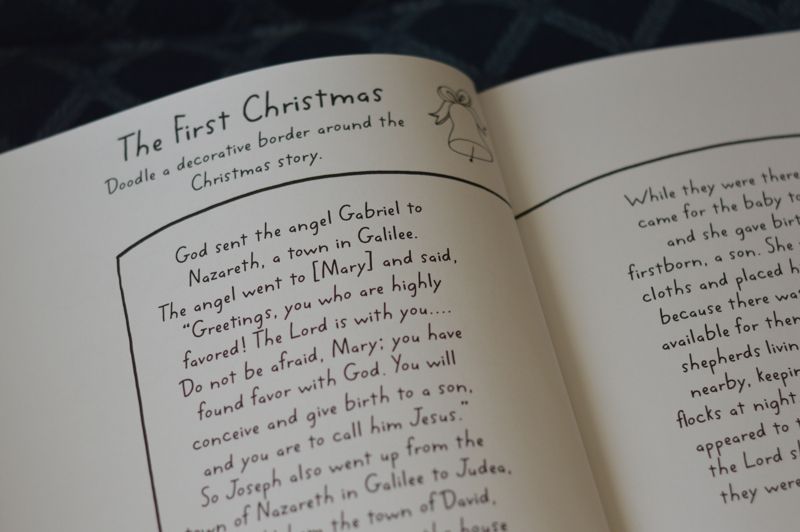 The First Christmas
Doodle a decorative border around the
Christmas story.
God sent the angel Gabriel to
Nazareth, a town in Galilee.
The angel went to [Mary] and said,
“Greetings, you who are highly
favored! The Lord is with you....
Do not be afraid, Mary; you have
found favor with God. You will
conceive and give birth to a son,
and you are to call him Jesus.”
So Joseph also went up from the
town of Nazareth in Galilee to Judea,
the town of David,
the house
While they were there
came for the baby to
and she gave
firstborn, a son. She
cloths and placed
because there
available for
shepherds
nearby,
flocks at night
appeared to
the Lord
they were